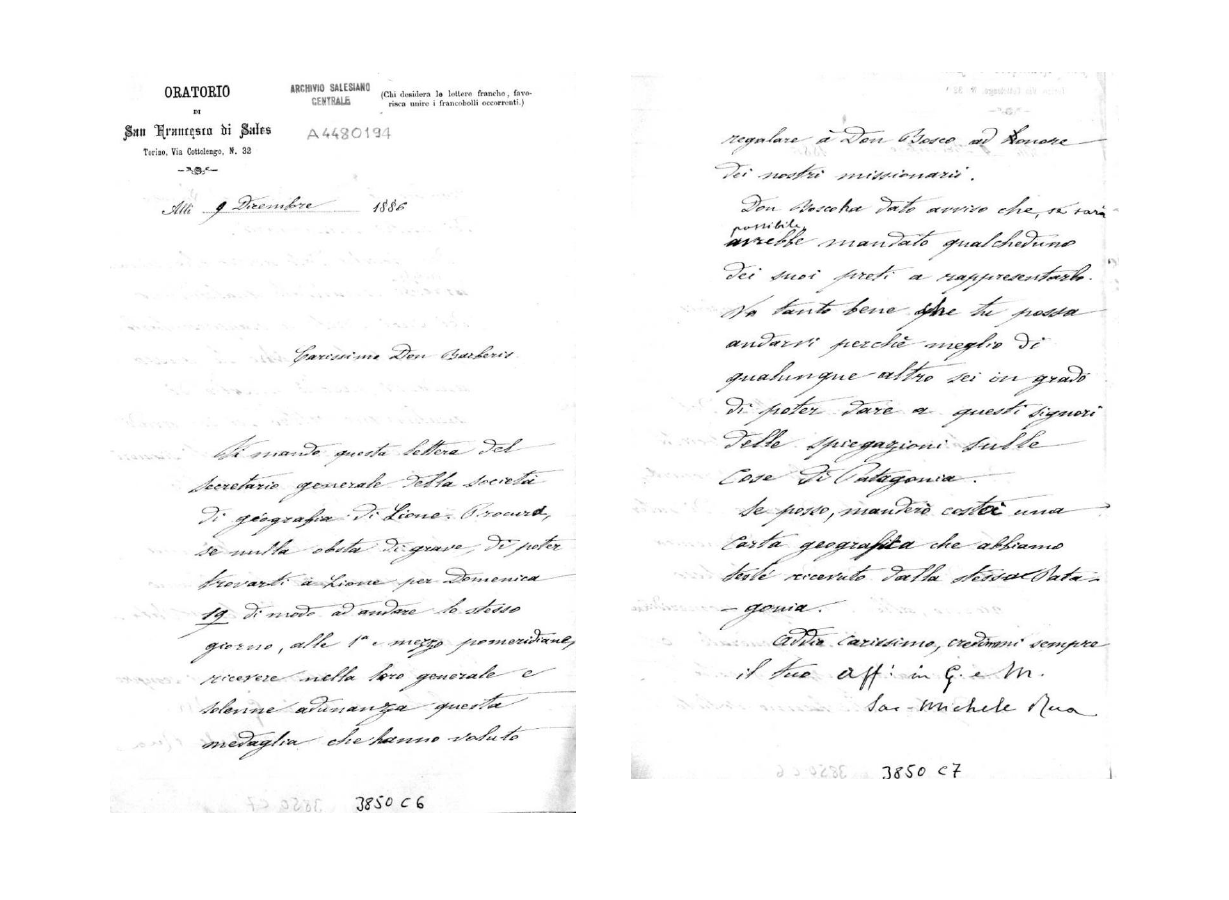 ORATORIO
DI
San Francesco di Sales
Torino, Via Cottolengo, N. 32
ARCHIVIO SALESIANO
CENTRALE
A4480194
(Chi desidera le lettere franche, favo-
risca unire i francobolli occorrenti.)
Alli 9 Dicembre 1886
Carissimo Don Barberis
Ti mando questa lettera del
Secretario generale della società
di geografia di Lione. Procura,
se nulla obsta di grave, di poter
trovarti a Lione per Domenica
19 di modo ad andare lo stesso
giorno, alle 1ª e mezzo pomeridiane,
ricevere nella loro generale e
solenne adunanza questa
medaglia che hanno voluto
3850 C6
regalare à Don Bosco ad honore
dei nostri missionarii.
Don Bosco ha dato avviso che, se sarà
possibile,
avrebbe mandato qualcheduno
dei suoi preti a rappresentarlo.
Va tanto bene che tu possa
andarvi perchè meglio di
qualunque altro sei in grado
di poter dare a questi signori
delle spiegazioni sulle
Cose di Patagonia.
Se posso, manderò costà una
Carta geografica che abbiamo
testè ricevuto dalla stessa Pata-
-gonia.
Addio Carissimo, credimi sempre
il tuo Aff: in G. e M.
Sac. Michele Rua
3850 C7